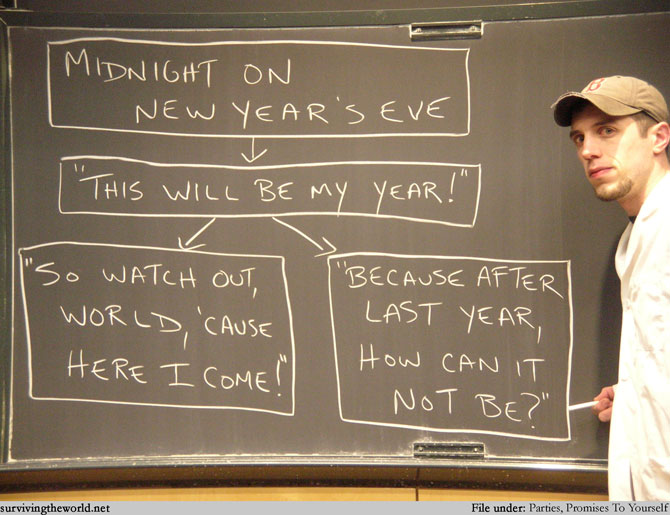 MIDNIGHT ON
NEW YEAR'S EVE
"THIS WILL BE MY YEAR!"
"SO WATCH OUT,
WORLD, 'CAUSE
HERE I COME!"
"BECAUSE AFTER
LAST YEAR,
HOW CAN IT
NOT BE?"
survivingtheworld.net
File under: Parties, Promises To Yourself